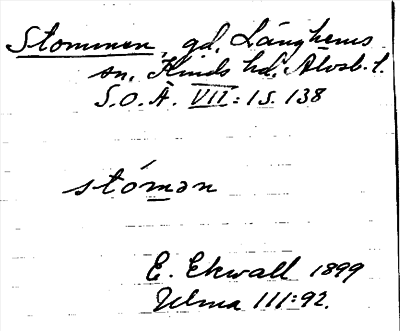 Stommen, gd, Länghems
sn, Kinds hd, Älvsb. l.
S.O.Ä. VII:1 S. 138
stómən
E. Ekwall 1899
Ulma 111:92.